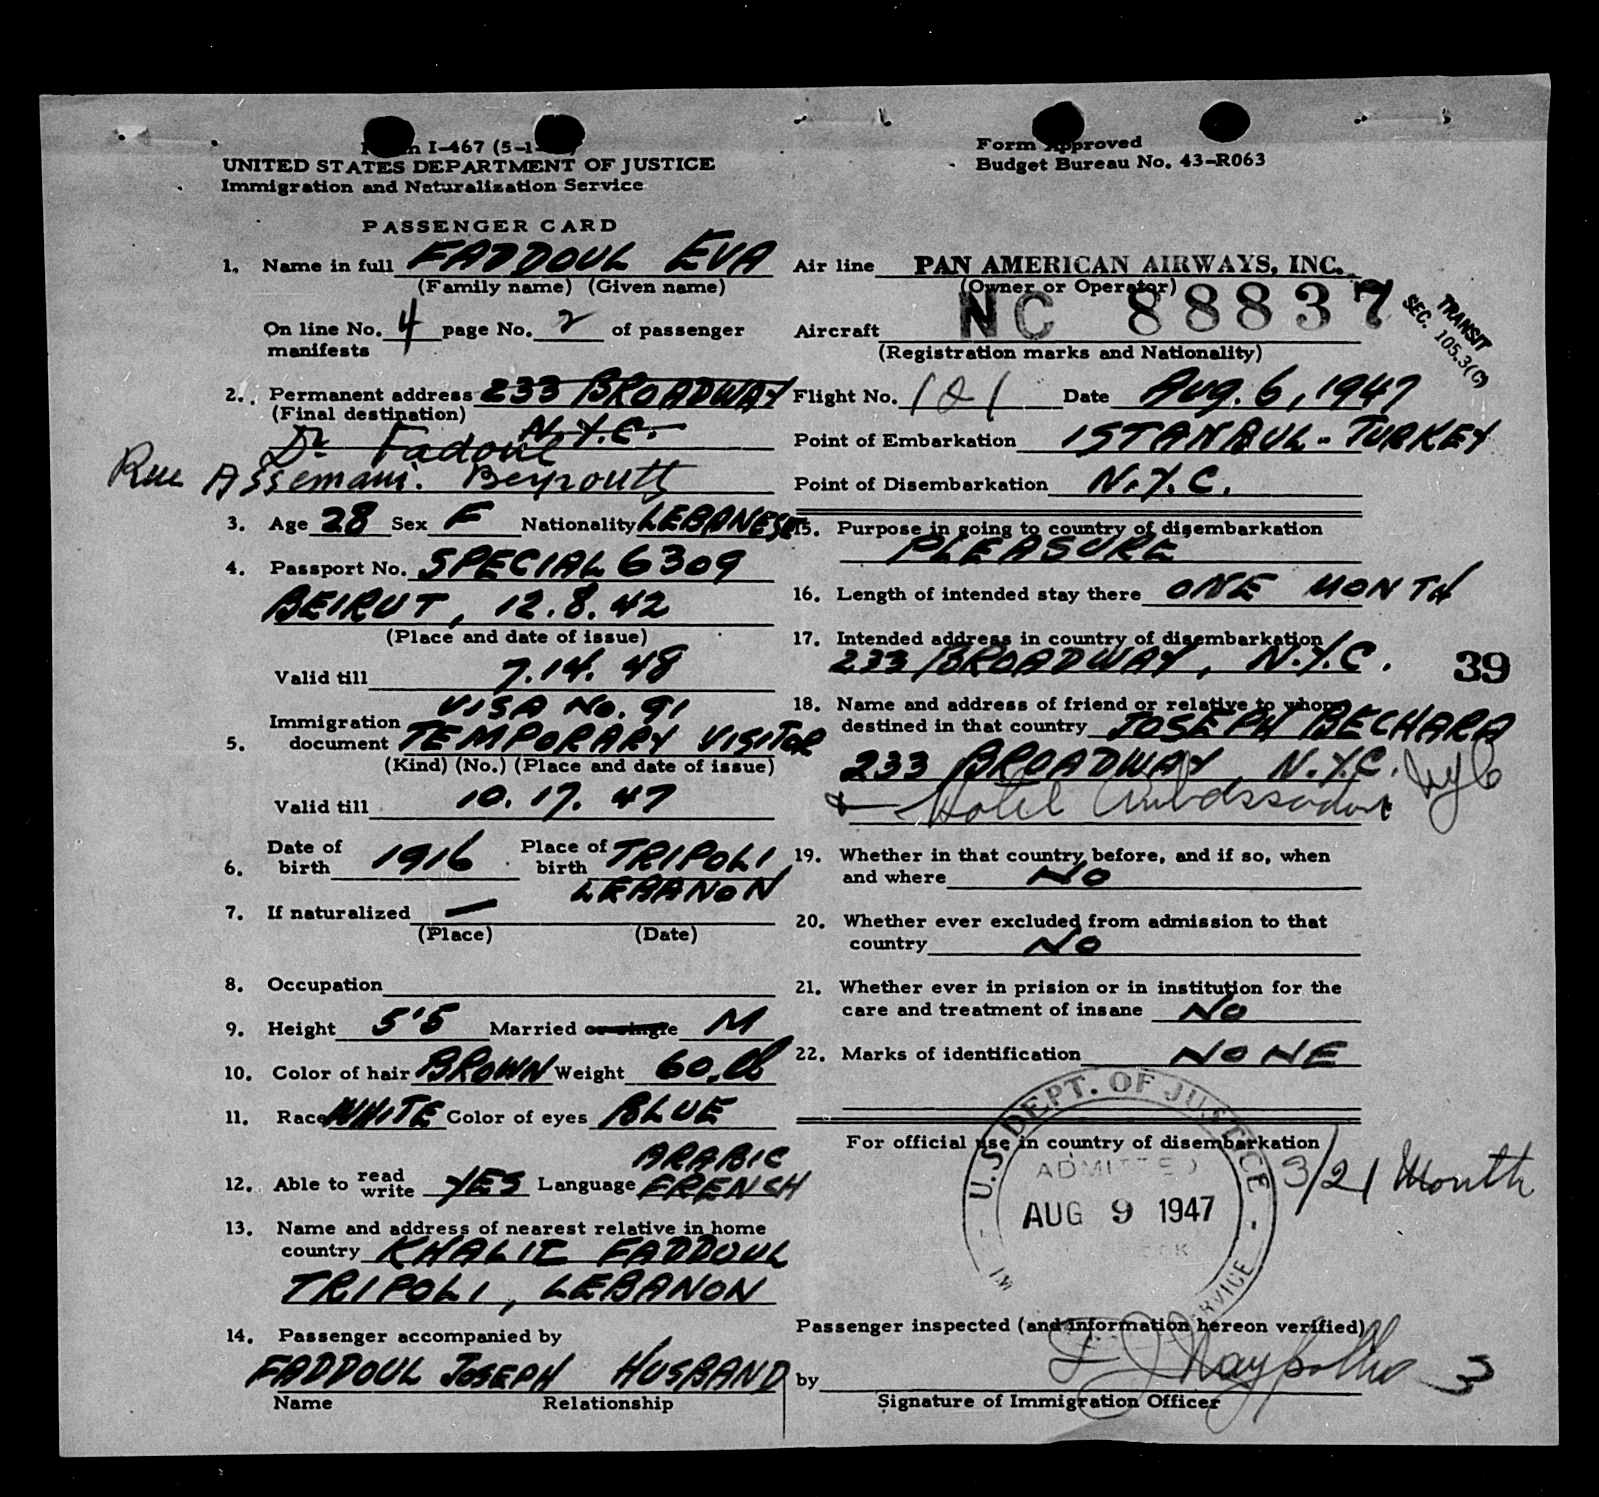 I-467 (5-1-
UNITED STATES DEPARTMENT OF JUSTICE
Immigration and Naturalization Service
Form Approved
Budget Bureau No. 43-R063
PASSENGER CARD
1. Name in full FADDOUL EVA
(Family name) (Given name)
On line No. 4 page No. 2 of passenger
manifests
2. Permanent address 233 BROADWAY
(Final destination)
N.Y.C.
Dr Fadoul
Rue Assemani. Beyrouth
3. Age 28 Sex F Nationality LEBANESE
4. Passport No. SPECIAL 6309
BEIRUT, 12.8.42
(Place and date of issue)
Valid till 7.14.48
VISA No. 91
5. Immigration document TEMPORARY VISITOR
(Kind) (No.) (Place and date of issue)
Valid till 10.17.47
6. Date of birth 1916 Place of birth TRIPOLI
LEBANON
7. If naturalized —
(Place) (Date)
8. Occupation
9. Height 5'5 Married or single M
10. Color of hair BROWN Weight 60.lb
11. Race WHITE Color of eyes BLUE
12. Able to read write YES Language ARABIC
FRENCH
13. Name and address of nearest relative in home
country KHALIL FADDOUL
TRIPOLI, LEBANON
14. Passenger accompanied by
FADDOUL JOSEPH HUSBAND
Name Relationship
Air line PAN AMERICAN AIRWAYS, INC.
(Owner or Operator)
Aircraft NC 88837
(Registration marks and Nationality)
TRANSIT
SEC. 105.3(C)
Flight No. 121 Date Aug. 6, 1947
Point of Embarkation ISTANBUL - TURKEY
Point of Disembarkation N.Y.C.
15. Purpose in going to country of disembarkation
PLEASURE
16. Length of intended stay there ONE MONTH
17. Intended address in country of disembarkation
233 BROADWAY, N.Y.C.
39
18. Name and address of friend or relative to whom
destined in that country JOSEPH BECHARA
233 BROADWAY, N.Y.C.
Hotel Ambassador nyc
19. Whether in that country before, and if so, when
and where NO
20. Whether ever excluded from admission to that
country NO
21. Whether ever in prision or in institution for the
care and treatment of insane NO
22. Marks of identification NONE
For official use in country of disembarkation
U.S. DEPT. OF JUSTICE
ADMITTED
AUG 9 1947
3/21 Month
Passenger inspected (and information hereon verified)
by
3
Signature of Immigration Officer